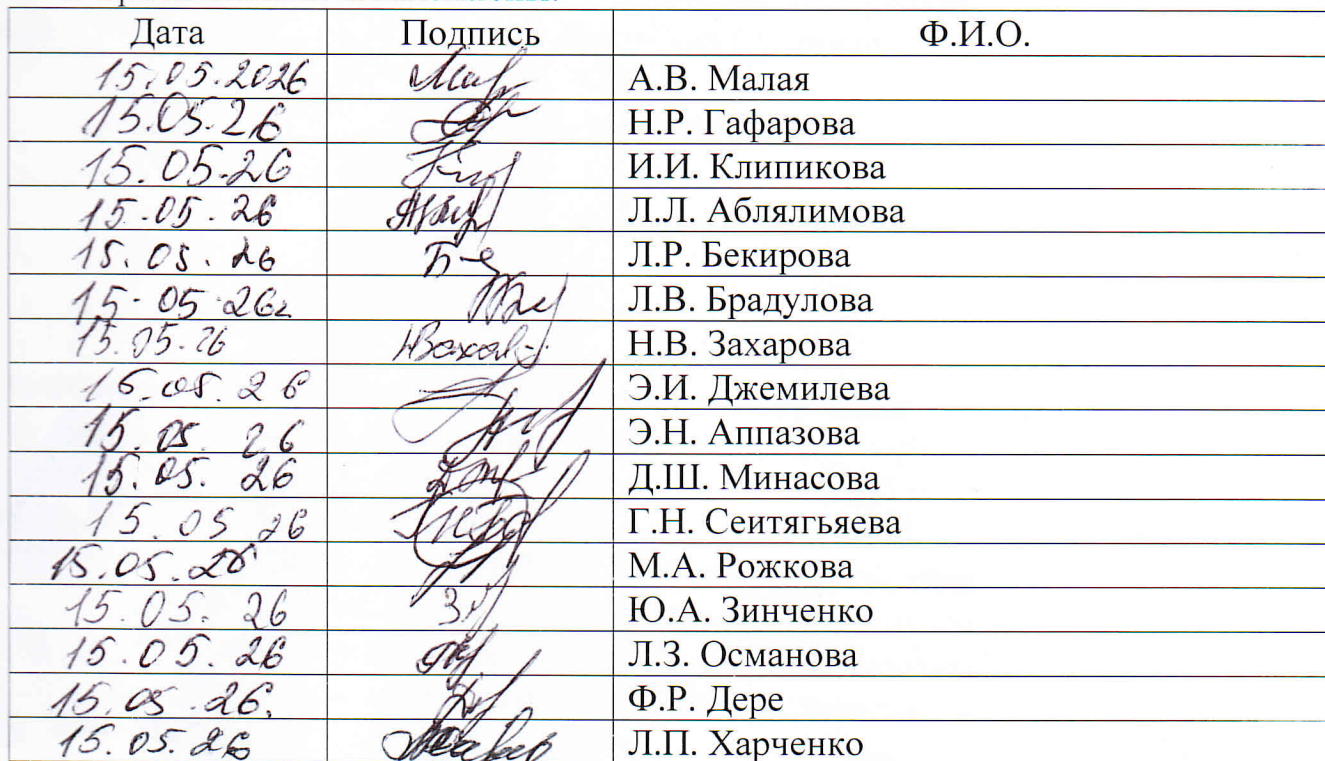 Дата Подпись Ф.И.О.
15.05.2026 А.В. Малая
15.05.26 Н.Р. Гафарова
15.05.26 И.И. Клипикова
15.05.26 Л.Л. Аблялимова
15.05.26 Л.Р. Бекирова
15.05.26г Л.В. Брадулова
15.05.26 Н.В. Захарова
15.05.26 Э.И. Джемилева
15.05.26 Э.Н. Аппазова
15.05.26 Д.Ш. Минасова
15.05 26 Г.Н. Сеитягьяева
15.05.26 М.А. Рожкова
15.05.26 Ю.А. Зинченко
15.05.26 Л.З. Османова
15.05.26. Ф.Р. Дере
15.05.26 Л.П. Харченко